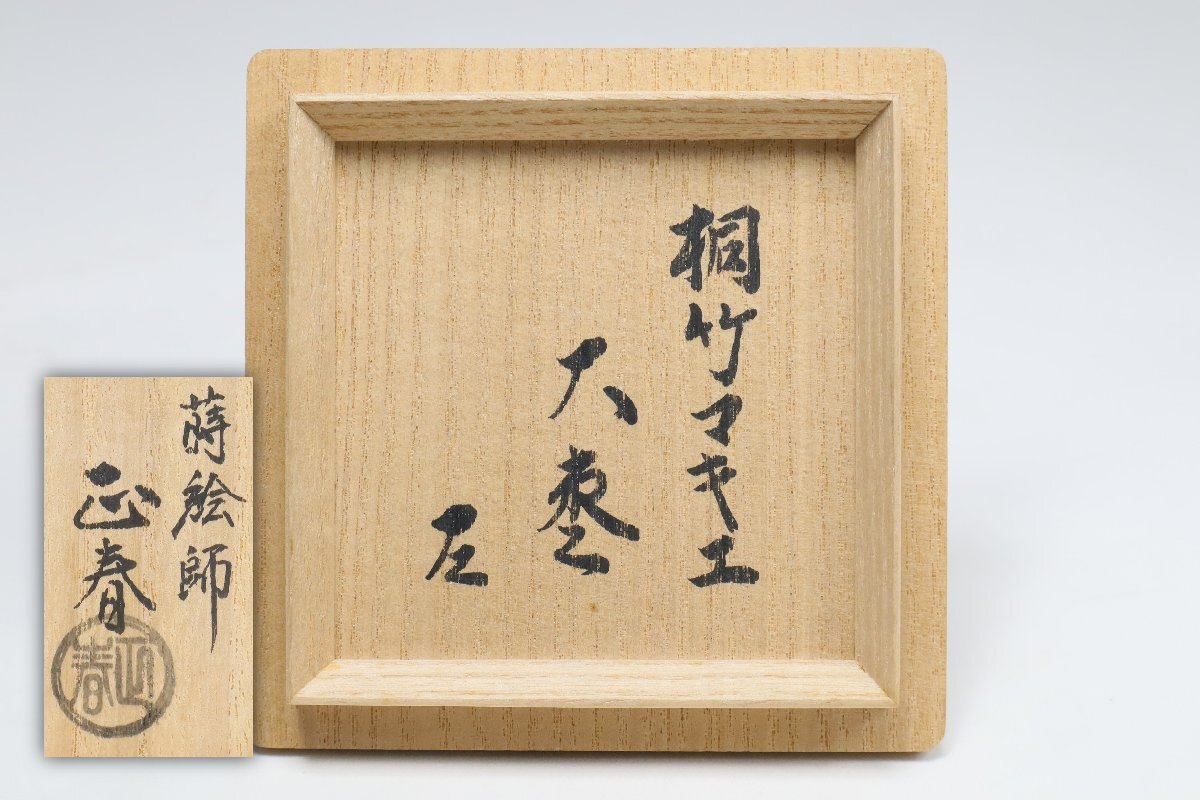 桐竹マキエ
大棗
左
蒔絵師
正春
正春